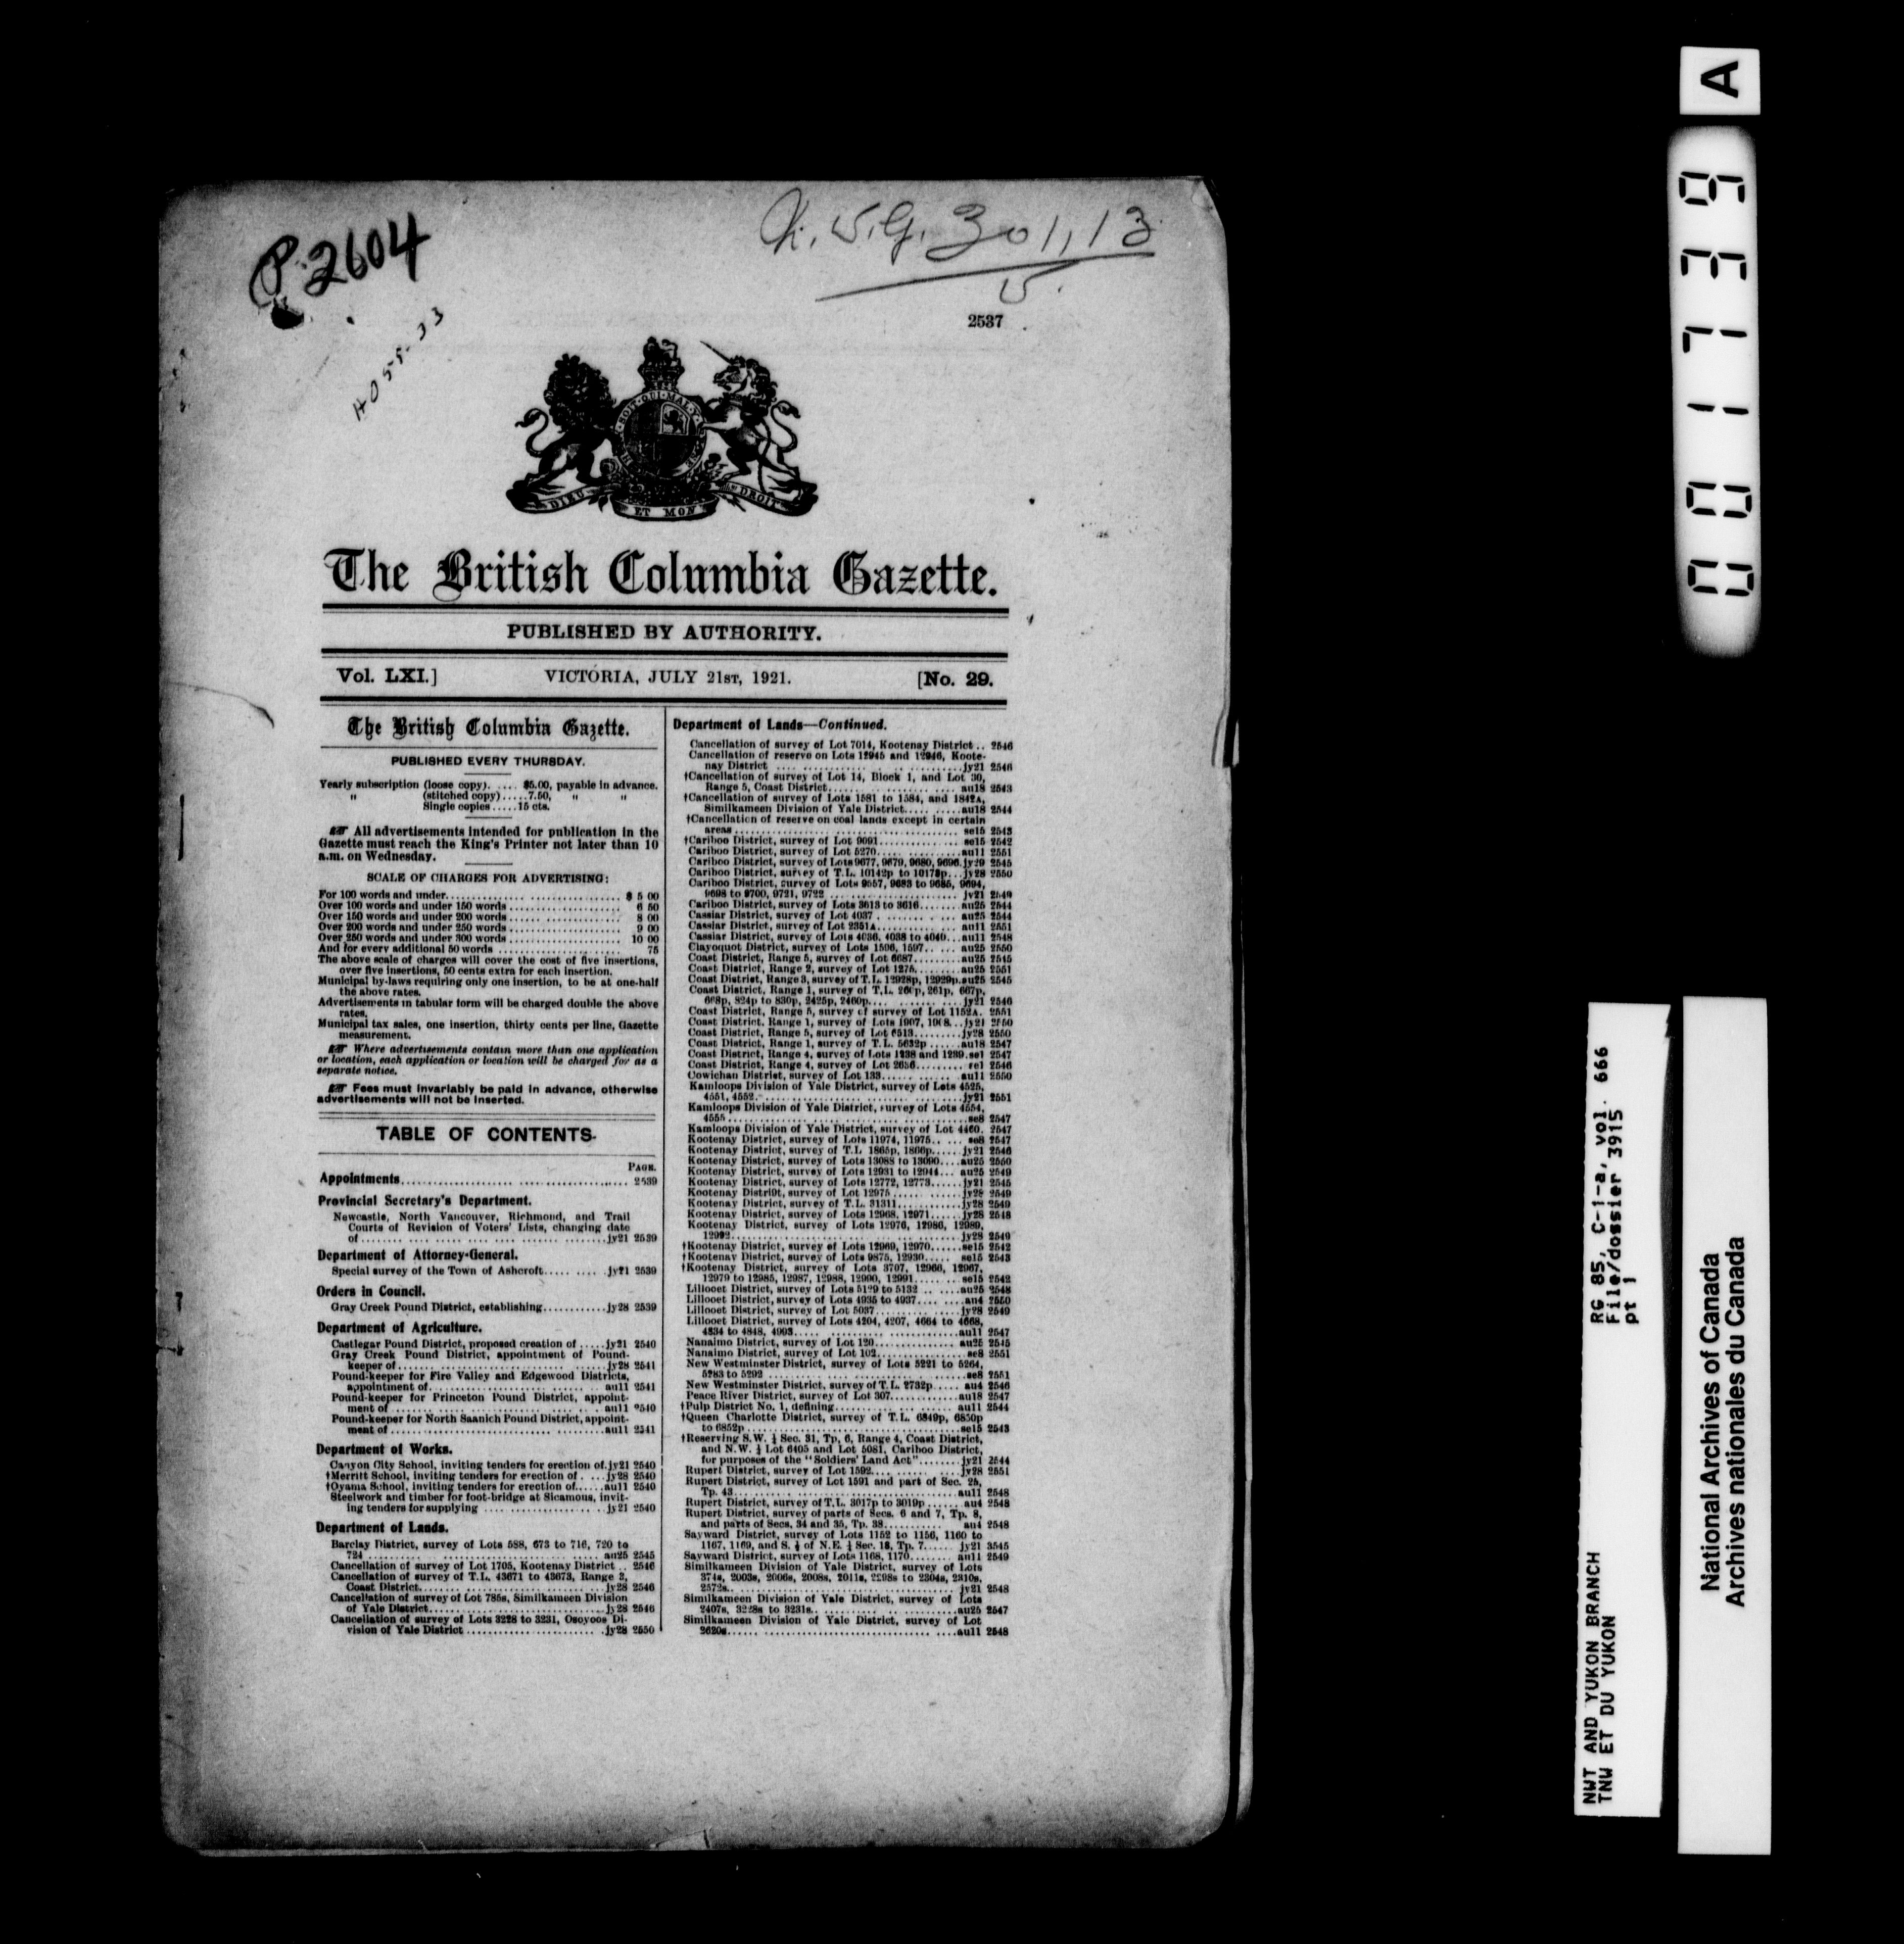 P. 2604
2537
HO 55-33
DIEU ET MON DROIT
The British Columbia Gazette.
PUBLISHED BY AUTHORITY.
Vol. LXI.] VICTORIA, JULY 21ST, 1921. [No. 29.
The British Columbia Gazette.
PUBLISHED EVERY THURSDAY.
Yearly subscription (loose copy)..... $5.00, payable in advance.
" (stitched copy).....7.50, " "
Single copies.....15 cts.
All advertisements intended for publication in the
Gazette must reach the King's Printer not later than 10
a.m. on Wednesday.
SCALE OF CHARGES FOR ADVERTISING:
For 100 words and under.......... $ 5 00
Over 100 words and under 150 words.......... 6 50
Over 150 words and under 200 words.......... 8 00
Over 200 words and under 250 words.......... 9 00
Over 250 words and under 300 words.......... 10 00
And for every additional 50 words.......... 75
The above scale of charges will cover the cost of five insertions,
over five insertions, 50 cents extra for each insertion.
Municipal by-laws requiring only one insertion, to be at one-half
the above rates.
Advertisements in tabular form will be charged double the above
rates.
Municipal tax sales, one insertion, thirty cents per line, Gazette
measurement.
Where advertisements contain more than one application
or location, each application or location will be charged for as a
separate notice.
Fees must invariably be paid in advance, otherwise
advertisements will not be inserted.
TABLE OF CONTENTS.
PAGE.
Appointments.......... 2539
Provincial Secretary's Department.
Newcastle, North Vancouver, Richmond, and Trail
Courts of Revision of Voters' Lists, changing date
of..........jy21 2539
Department of Attorney-General.
Special survey of the Town of Ashcroft..........jy21 2539
Orders in Council.
Gray Creek Pound District, establishing..........jy28 2539
Department of Agriculture.
Castlegar Pound District, proposed creation of .....jy21 2540
Gray Creek Pound District, appointment of Pound-
keeper of..........jy28 2541
Pound-keeper for Fire Valley and Edgewood Districts,
appointment of..........au11 2541
Pound-keeper for Princeton Pound District, appoint-
ment of..........au11 2540
Pound-keeper for North Saanich Pound District, appoint-
ment of..........au11 2541
Department of Works.
Canyon City School, inviting tenders for erection of.jy21 2540
†Merritt School, inviting tenders for erection of....jy28 2540
†Oyama School, inviting tenders for erection of......au11 2540
Steelwork and timber for foot-bridge at Sicamous, invit-
ing tenders for supplying..........jy21 2540
Department of Lands.
Barclay District, survey of Lots 588, 673 to 716, 720 to
724..........au25 2545
Cancellation of survey of Lot 1705, Kootenay District.. 2546
Cancellation of survey of T.L. 43671 to 43673, Range 3,
Coast District..........jy28 2546
Cancellation of survey of Lot 785s, Similkameen Division
of Yale District..........jy28 2546
Cancellation of survey of Lots 3228 to 3231, Osoyoos Di-
vision of Yale District..........jy28 2550
Department of Lands—Continued.
Cancellation of survey of Lot 7014, Kootenay District.. 2546
Cancellation of reserve on Lots 12945 and 12946, Koote-
nay District..........jy21 2546
†Cancellation of survey of Lot 14, Block 1, and Lot 30,
Range 5, Coast District..........au18 2543
†Cancellation of survey of Lots 1581 to 1584, and 1842A,
Similkameen Division of Yale District..........au18 2544
†Cancellation of reserve on coal lands except in certain
areas..........se15 2543
†Cariboo District, survey of Lot 9091..........se15 2542
Cariboo District, survey of Lot 5270..........au11 2551
Cariboo District, survey of Lots 9677, 9679, 9680, 9696.jy29 2545
Cariboo District, survey of T.L. 10142p to 10178p...jy28 2550
Cariboo District, survey of Lots 9557, 9683 to 9685, 9694,
9698 to 9700, 9721, 9722..........jy21 2549
Cariboo District, survey of Lots 3613 to 3616..........au25 2544
Cassiar District, survey of Lot 4037..........au25 2544
Cassiar District, survey of Lot 2351A..........au11 2551
Cassiar District, survey of Lots 4036, 4038 to 4040...au11 2548
Clayoquot District, survey of Lots 1596, 1597..........au25 2550
Coast District, Range 5, survey of Lot 6687..........au25 2545
Coast District, Range 2, survey of Lot 1275..........au25 2551
Coast District, Range 3, survey of T.L. 12928p, 12929p.au25 2545
Coast District, Range 1, survey of T.L. 260p, 261p, 667p,
668p, 824p to 830p, 2425p, 2460p..........jy21 2546
Coast District, Range 5, survey of survey of Lot 1152A. 2551
Coast District, Range 1, survey of Lots 1907, 1908...jy21 2550
Coast District, Range 5, survey of Lot 6513..........jy28 2550
Coast District, Range 1, survey of T.L. 5632p......au18 2547
Coast District, Range 4, survey of Lots 1238 and 1239.se1 2547
Coast District, Range 4, survey of Lot 2636..........se1 2546
Cowichan District, survey of Lot 133..........au11 2550
Kamloops Division of Yale District, survey of Lots 4525,
4551, 4552..........jy21 2551
Kamloops Division of Yale District, survey of Lots 4554,
4555..........se8 2547
Kamloops Division of Yale District, survey of Lot 4460. 2547
Kootenay District, survey of Lots 11974, 11975..........se8 2547
Kootenay District, survey of T.L. 1865p, 1866p......jy21 2546
Kootenay District, survey of Lots 13088 to 13090....au25 2550
Kootenay District, survey of Lots 12931 to 12944...au25 2549
Kootenay District, survey of Lots 12772, 12773......jy21 2545
Kootenay District, survey of Lot 12975..........jy28 2549
Kootenay District, survey of T.L. 31311..........jy28 2549
Kootenay District, survey of Lots 12968, 12971......jy28 2548
Kootenay District, survey of Lots 12976, 12986, 12989,
12992..........jy28 2549
†Kootenay District, survey of Lots 12969, 12970......se15 2542
†Kootenay District, survey of Lots 9875, 12930.....se15 2543
†Kootenay District, survey of Lots 3707, 12966, 12967,
12979 to 12985, 12987, 12988, 12990, 12991........se15 2542
Lillooet District, survey of Lots 5129 to 5132......au25 2548
Lillooet District, survey of Lots 4935 to 4937......au4 2550
Lillooet District, survey of Lot 5037..........jy28 2549
Lillooet District, survey of Lots 4204, 4207, 4664 to 4668,
4834 to 4848, 4993..........au11 2547
Nanaimo District, survey of Lot 120..........au25 2545
Nanaimo District, survey of Lot 102..........se8 2551
New Westminster District, survey of Lots 5221 to 5264,
5283 to 5292..........se8 2551
New Westminster District, survey of T.L. 2732p.....au4 2546
Peace River District, survey of Lot 307..........au18 2547
†Pulp District No. 1, defining..........au11 2544
†Queen Charlotte District, survey of T.L. 6849p, 6850p
to 6852p..........se15 2543
†Reserving S.W. ¼ Sec. 31, Tp. 6, Range 4, Coast District,
and N.W. ¼ Lot 6405 and Lot 5081, Cariboo District,
for purposes of the "Soldiers' Land Act"........jy21 2544
Rupert District, survey of Lot 1592..........jy28 2551
Rupert District, survey of Lot 1591 and part of Sec. 25,
Tp. 43..........au11 2548
Rupert District, survey of T.L. 3017p to 3019p......au4 2548
Rupert District, survey of parts of Secs. 6 and 7, Tp. 8,
and parts of Secs. 34 and 35, Tp. 38..........au4 2548
Sayward District, survey of Lots 1152 to 1156, 1160 to
1167, 1169, and S. ½ of N.E. ¼ Sec. 18, Tp. 7......jy21 3545
Sayward District, survey of Lots 1168, 1170........au11 2549
Similkameen Division of Yale District, survey of Lots
374s, 2003s, 2006s, 2008s, 2011s, 2298s to 2304s, 2310s,
2572s..........jy21 2548
Similkameen Division of Yale District, survey of Lots
2407s, 3228s to 3231s..........au25 2547
Similkameen Division of Yale District, survey of Lot
2620s..........au11 2548
A
001713 9
NWT AND YUKON BRANCH RG 85, C-1-a, vol. 666
TNW ET DU YUKON File/dossier 3915
pt 1
National Archives of Canada
Archives nationales du Canada